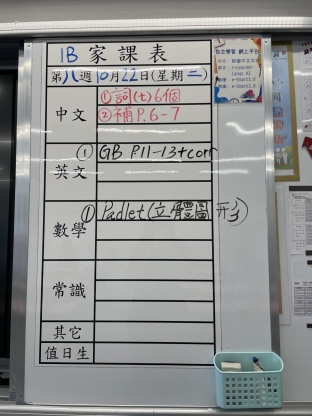 1B 家課表
第八週10月22日(星期二)
中文
①詞(七)6個
②補P.6-7
英文
① GB P.11-13+corr
數學
① Padlet(立體圖形)
常識
其它
值日生